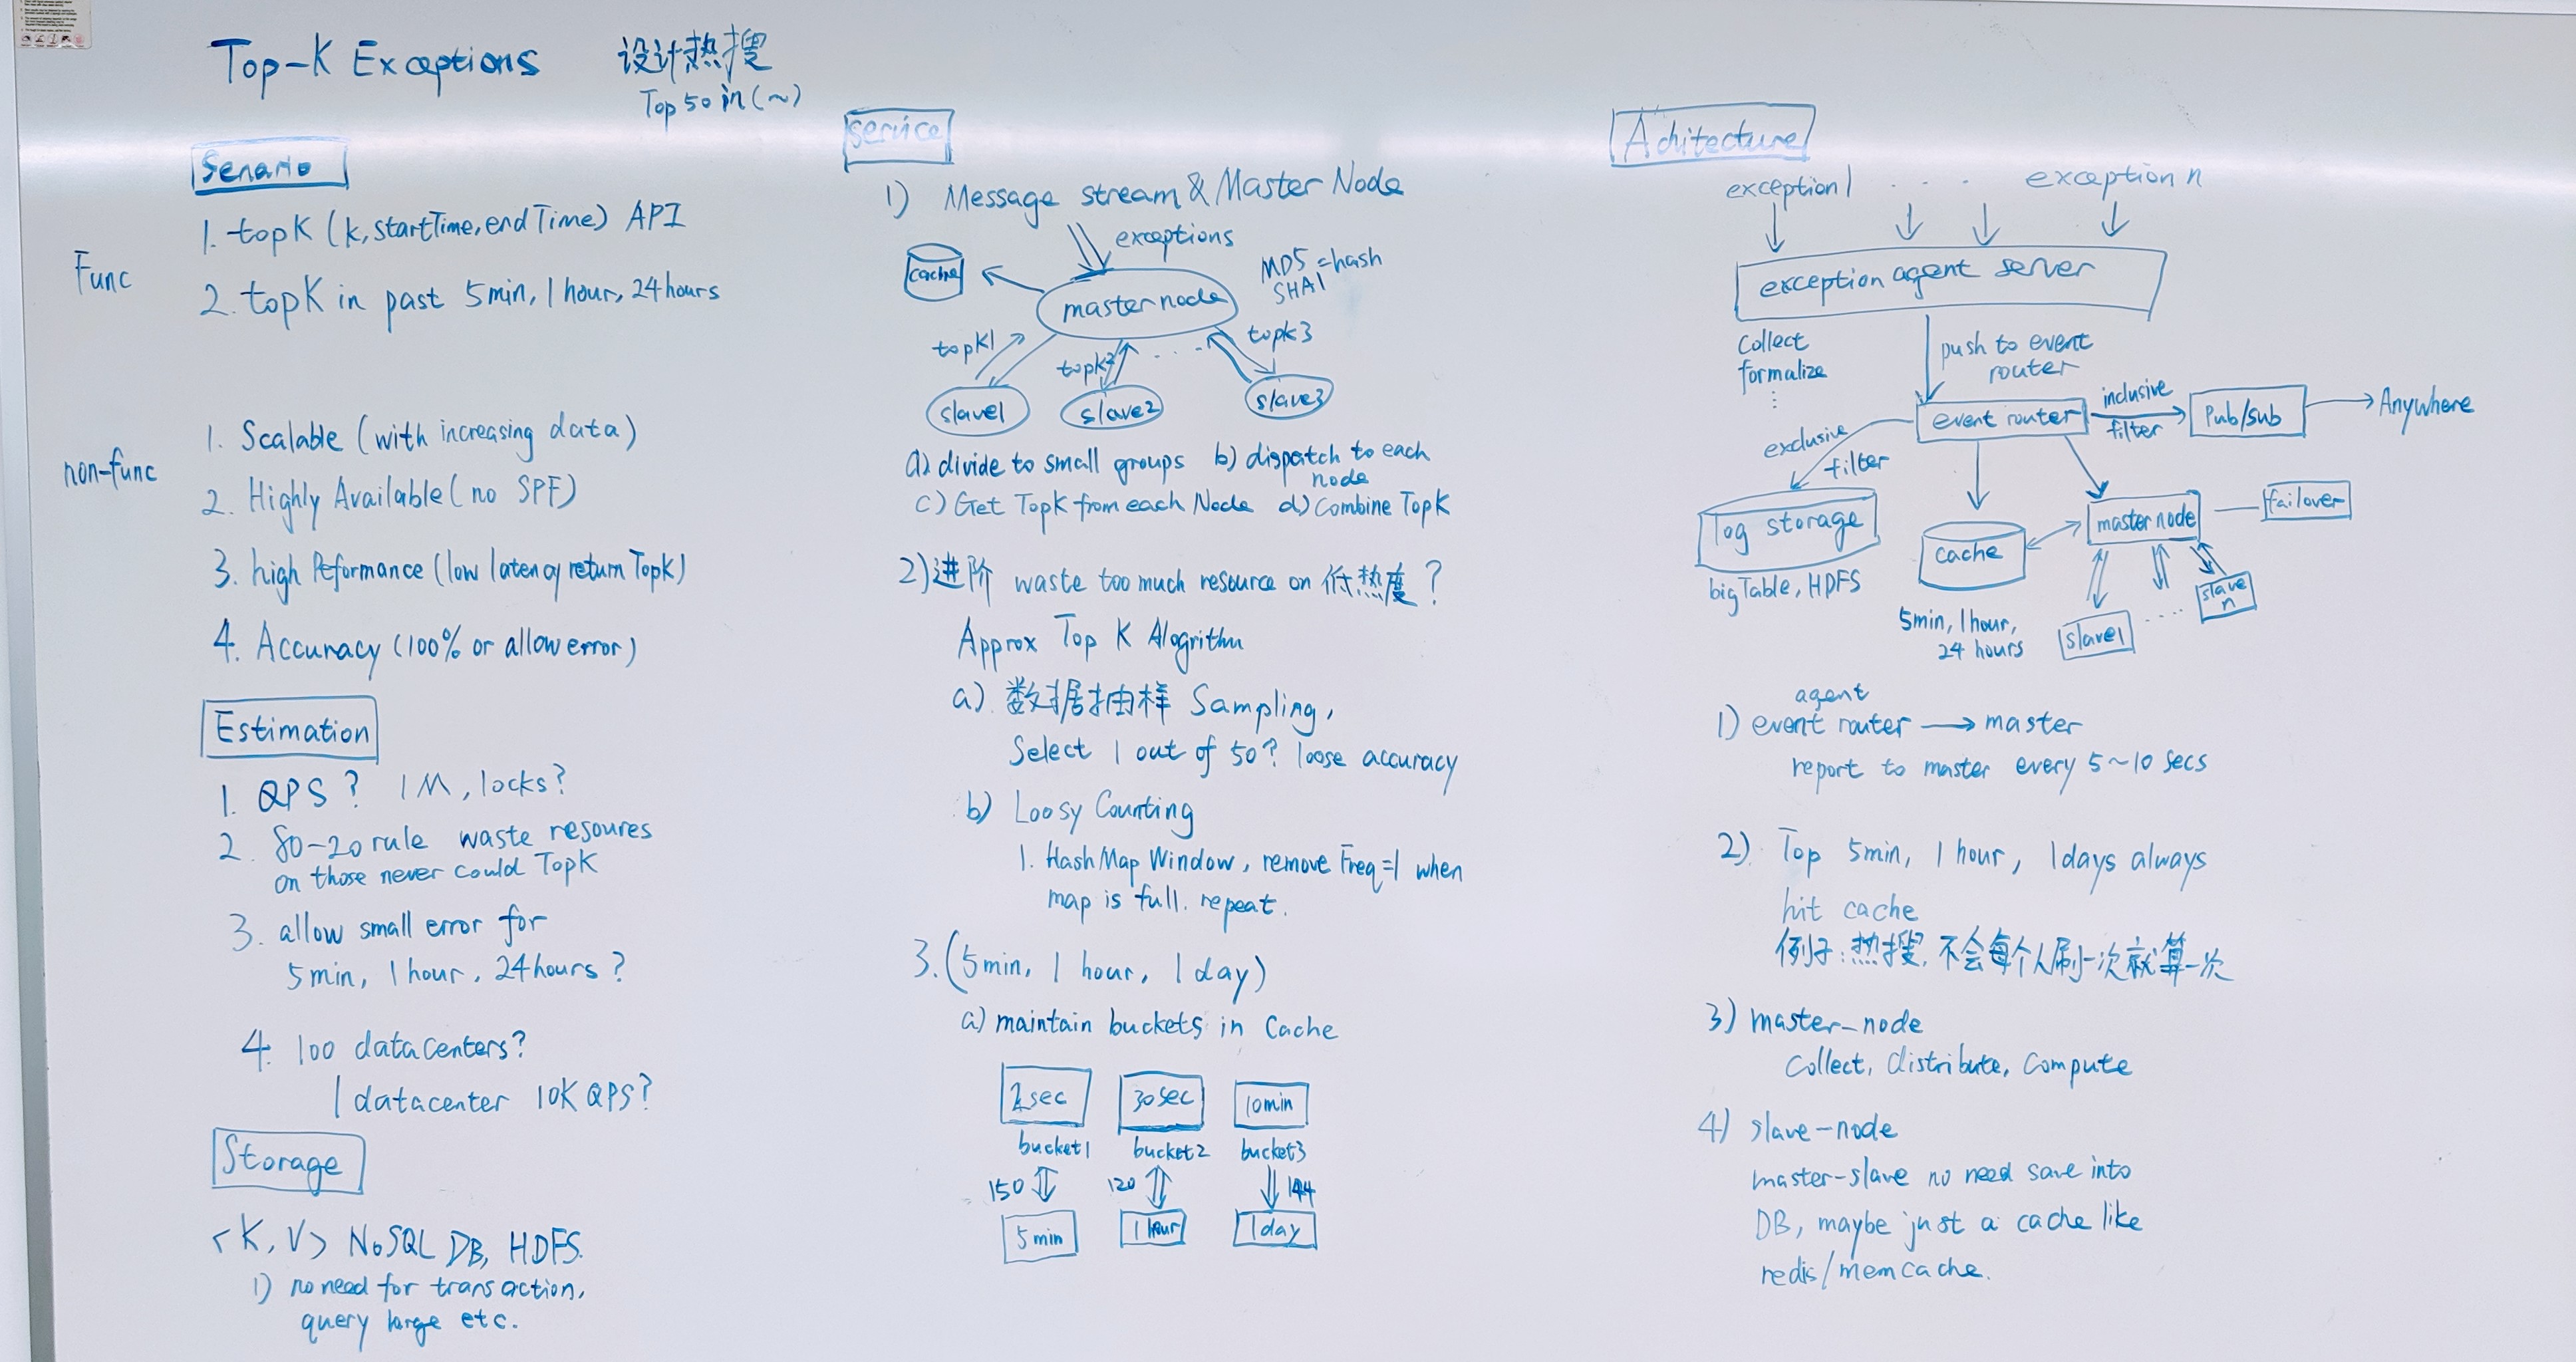 Top-K Exceptions
设计热搜
Top 50 in (~)
Senario
Func
1. topK (k, startTime, endTime) API
2. topK in past 5min, 1 hour, 24hours
non-func
1. Scalable (with increasing data)
2. Highly Available (no SPF)
3. high Peformance (low latency return TopK)
4. Accuracy (100% or allow error)
Estimation
1. QPS? 1M, locks?
2. 80-20 rule waste resoures
on those never could TopK
3. allow small error for
5min, 1 hour, 24hours?
4. 100 datacenters?
1 datacenter 10K QPS?
Storage
<K, V> NoSQL DB, HDFS.
1) no need for transaction,
query large etc.
Service
1) Message stream & Master Node
exceptions
cache
MD5 = hash
SHA1
master node
topK1
topk2
....
topk3
slave1
slave2
slave3
a) divide to small groups b) dispatch to each
node
c) Get TopK from each Node d) Combine TopK
2) 进阶 waste too much resource on 低热度?
Approx Top K Alogrithm
a). 数据抽样 Sampling,
Select 1 out of 50? loose accuracy
b) Loosy Counting
1. HashMap Window, remove Freq=1 when
map is full. repeat.
3. (5min, 1 hour, 1 day)
a) maintain buckets in Cache
2sec
30sec
10min
bucket1
bucket2
bucket3
150
120
144
5min
1 hour
1day
Achitecture
exception1 . . . exception n
exception agent server
Collect
formalize
⋮
push to event
router
event router
inclusive
filter
Pub/sub
Anywhere
exclusive
filter
log storage
bigTable, HDFS
cache
5min, 1hour,
24 hours
master node
failover
slave1
....
slave
n
agent
1) event router → master
report to master every 5~10 secs
2) Top 5min, 1 hour, 1days always
hit cache
例子:热搜,不会每个人刷一次就算一次
3) master-node
Collect, distribute, Compute
4) slave-node
master-slave no need save into
DB, maybe just a cache like
redis/memcache.